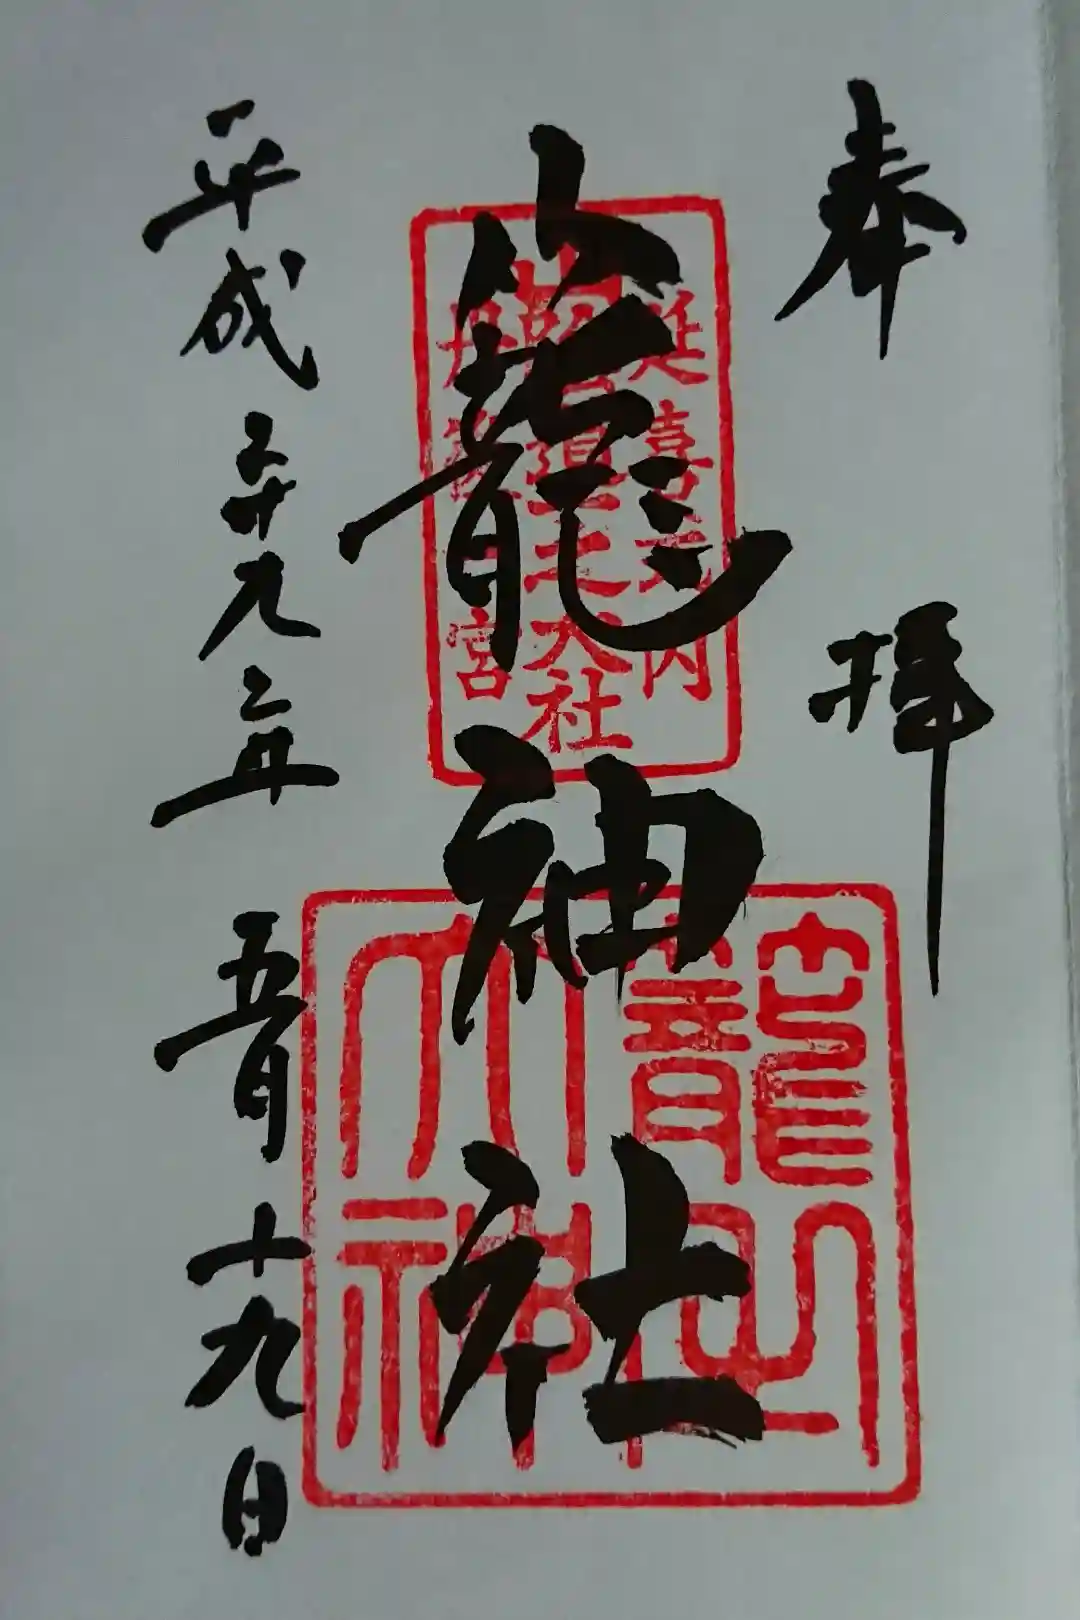 奉拝
籠神社
延喜式内
山陰道一之大社
丹後一宮
籠之大神
平成二十九年五月十九日